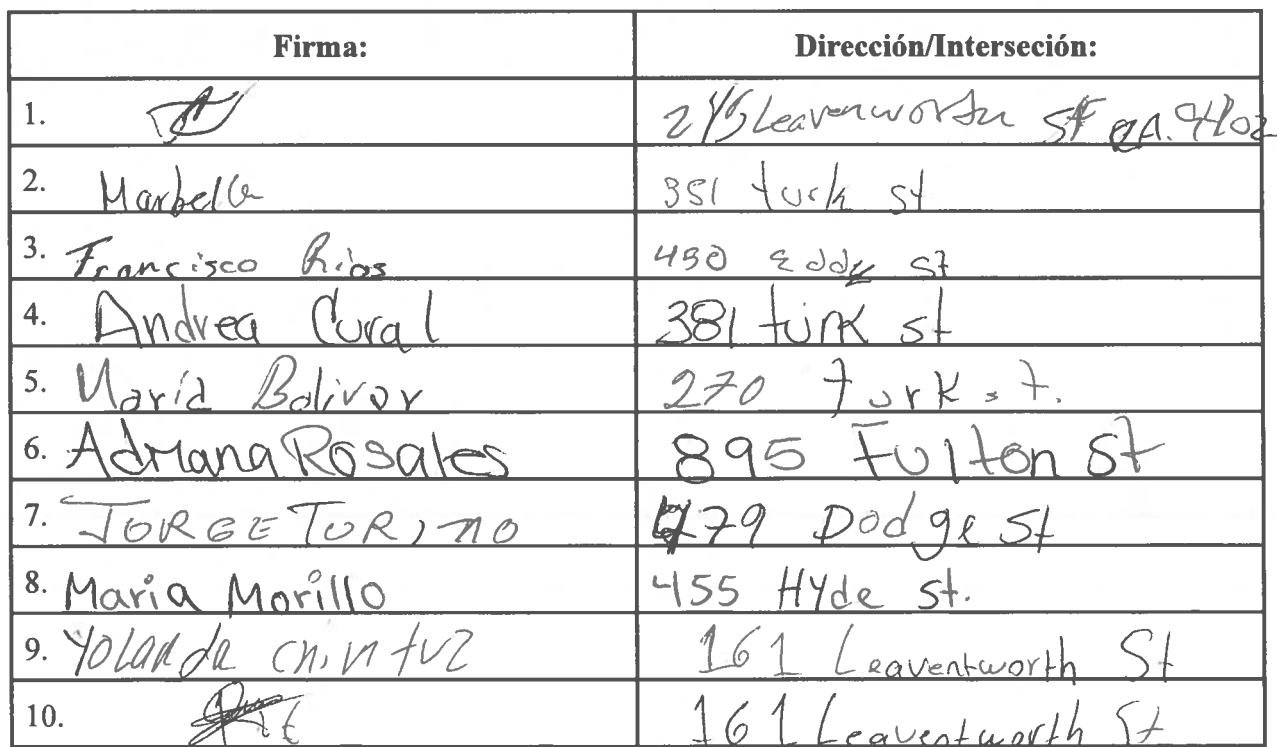 Firma: Dirección/Interseción:
1. 245 Leavenworth st
2. Marbella 351 turk st
3. Francisco Rios 450 Eddy st
4. Andrea Cural 381 turk st
5. María Bolivar 270 Turk st.
6. Adriana Rosales 895 Fulton St
7. JORGE TORINO 479 Dodge St
8. Maria Morillo 455 Hyde St.
9. Yolanda chintuz 161 Leaventworth St
10. 161 Leaventworth St